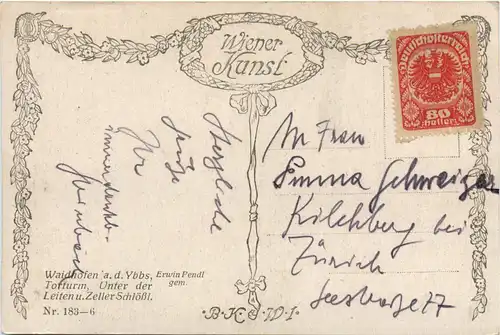 Wiener
Kunst
Deutschösterreich
80
Heller
Herzliche
Grüße
Ihr
Frau
Emma Schweizer
Kilchberg bei
Zürich
Seestrasse 77
Waidhofen a. d. Ybbs,
Torturm, Unter der
Leiten u. Zeller-Schlößl.
Erwin Pendl
gem.
Nr. 183-6
B·K·W·I